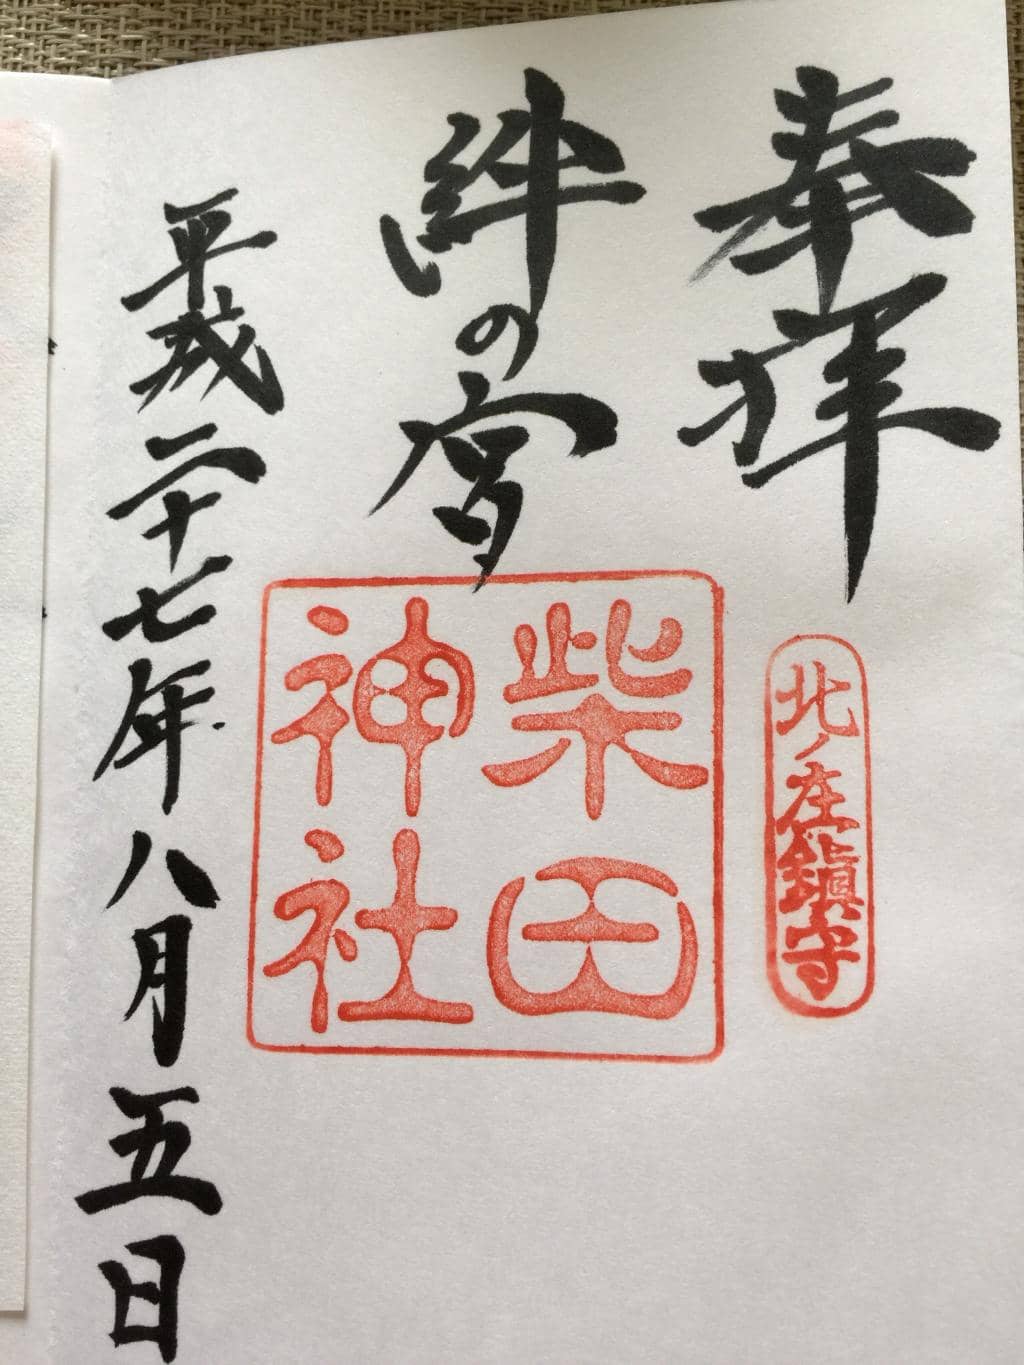 奉拝
北ノ庄鎮守
絆の宮
柴田
神社
平成二十七年八月五日